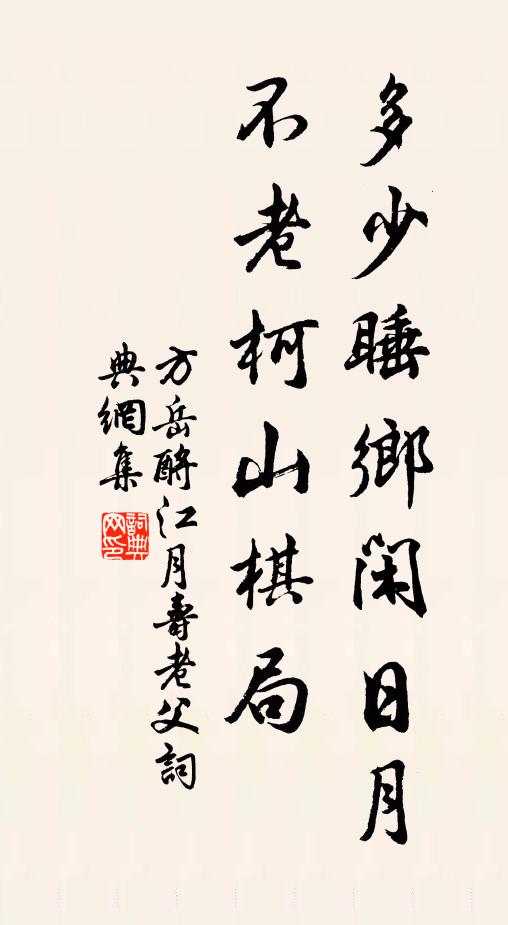 多少睡鄉閑日月
不老柯山棋局
方岳酹江月壽老父詞
典網集
詞典網印